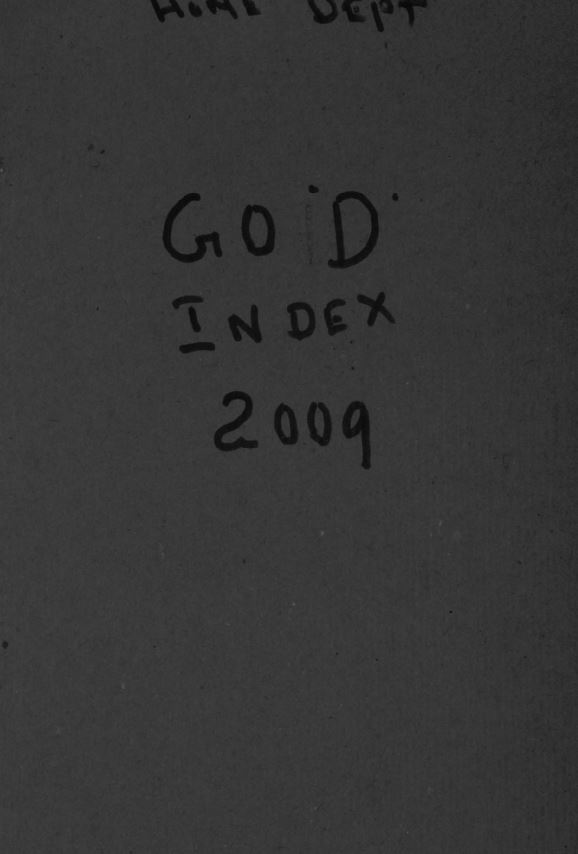 HOME DEPT
GO 'D'
INDEX
2009